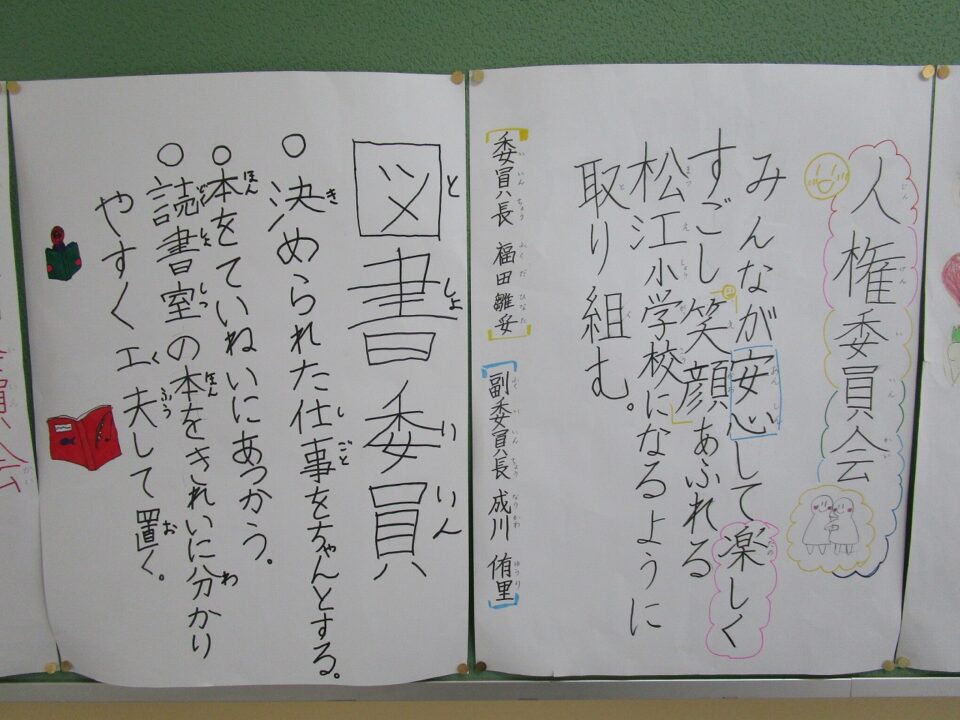 人権委員会
みんなが安心して楽しく
すごし笑顔あふれる
松江小学校になるように
取り組む。
委員長 福田 雛妥
副委員長 成川 侑里
図書委員
○決められた仕事をちゃんとする。
○本をていねいにあつかう。
○読書室の本をきれいに分かり
やすく工夫して置く。
員会